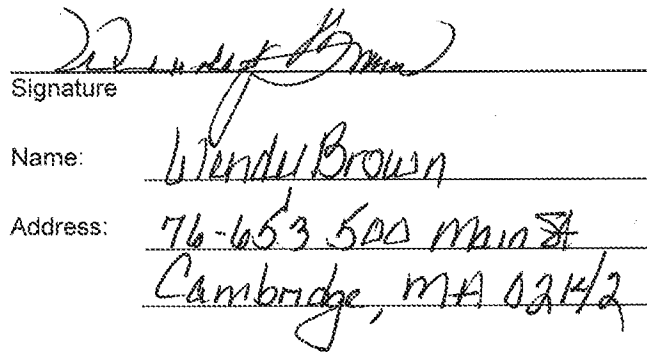 Wendy Brown
Signature
Name: Wendy Brown
Address: 76-653 500 Main St
Cambridge, MA 02142